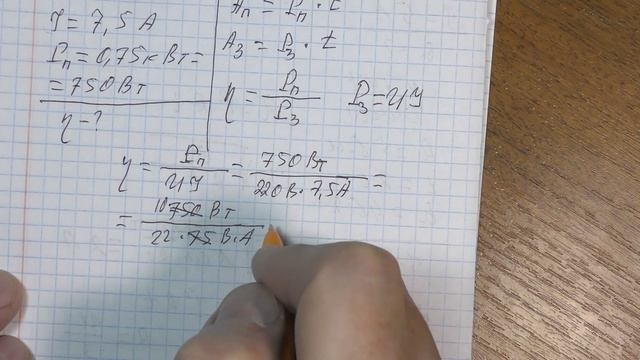 I = 7,5 А
Pп = 0,75 кВт =
= 750 Вт
η - ?
Aп = Pп · t
Aз = Pз · t
η = Pп / Pз    Pз = UI
η = Pп / UI = 750 Вт / 220 В · 7,5 А =
= 10 750 Вт / 22 · 75 В · А